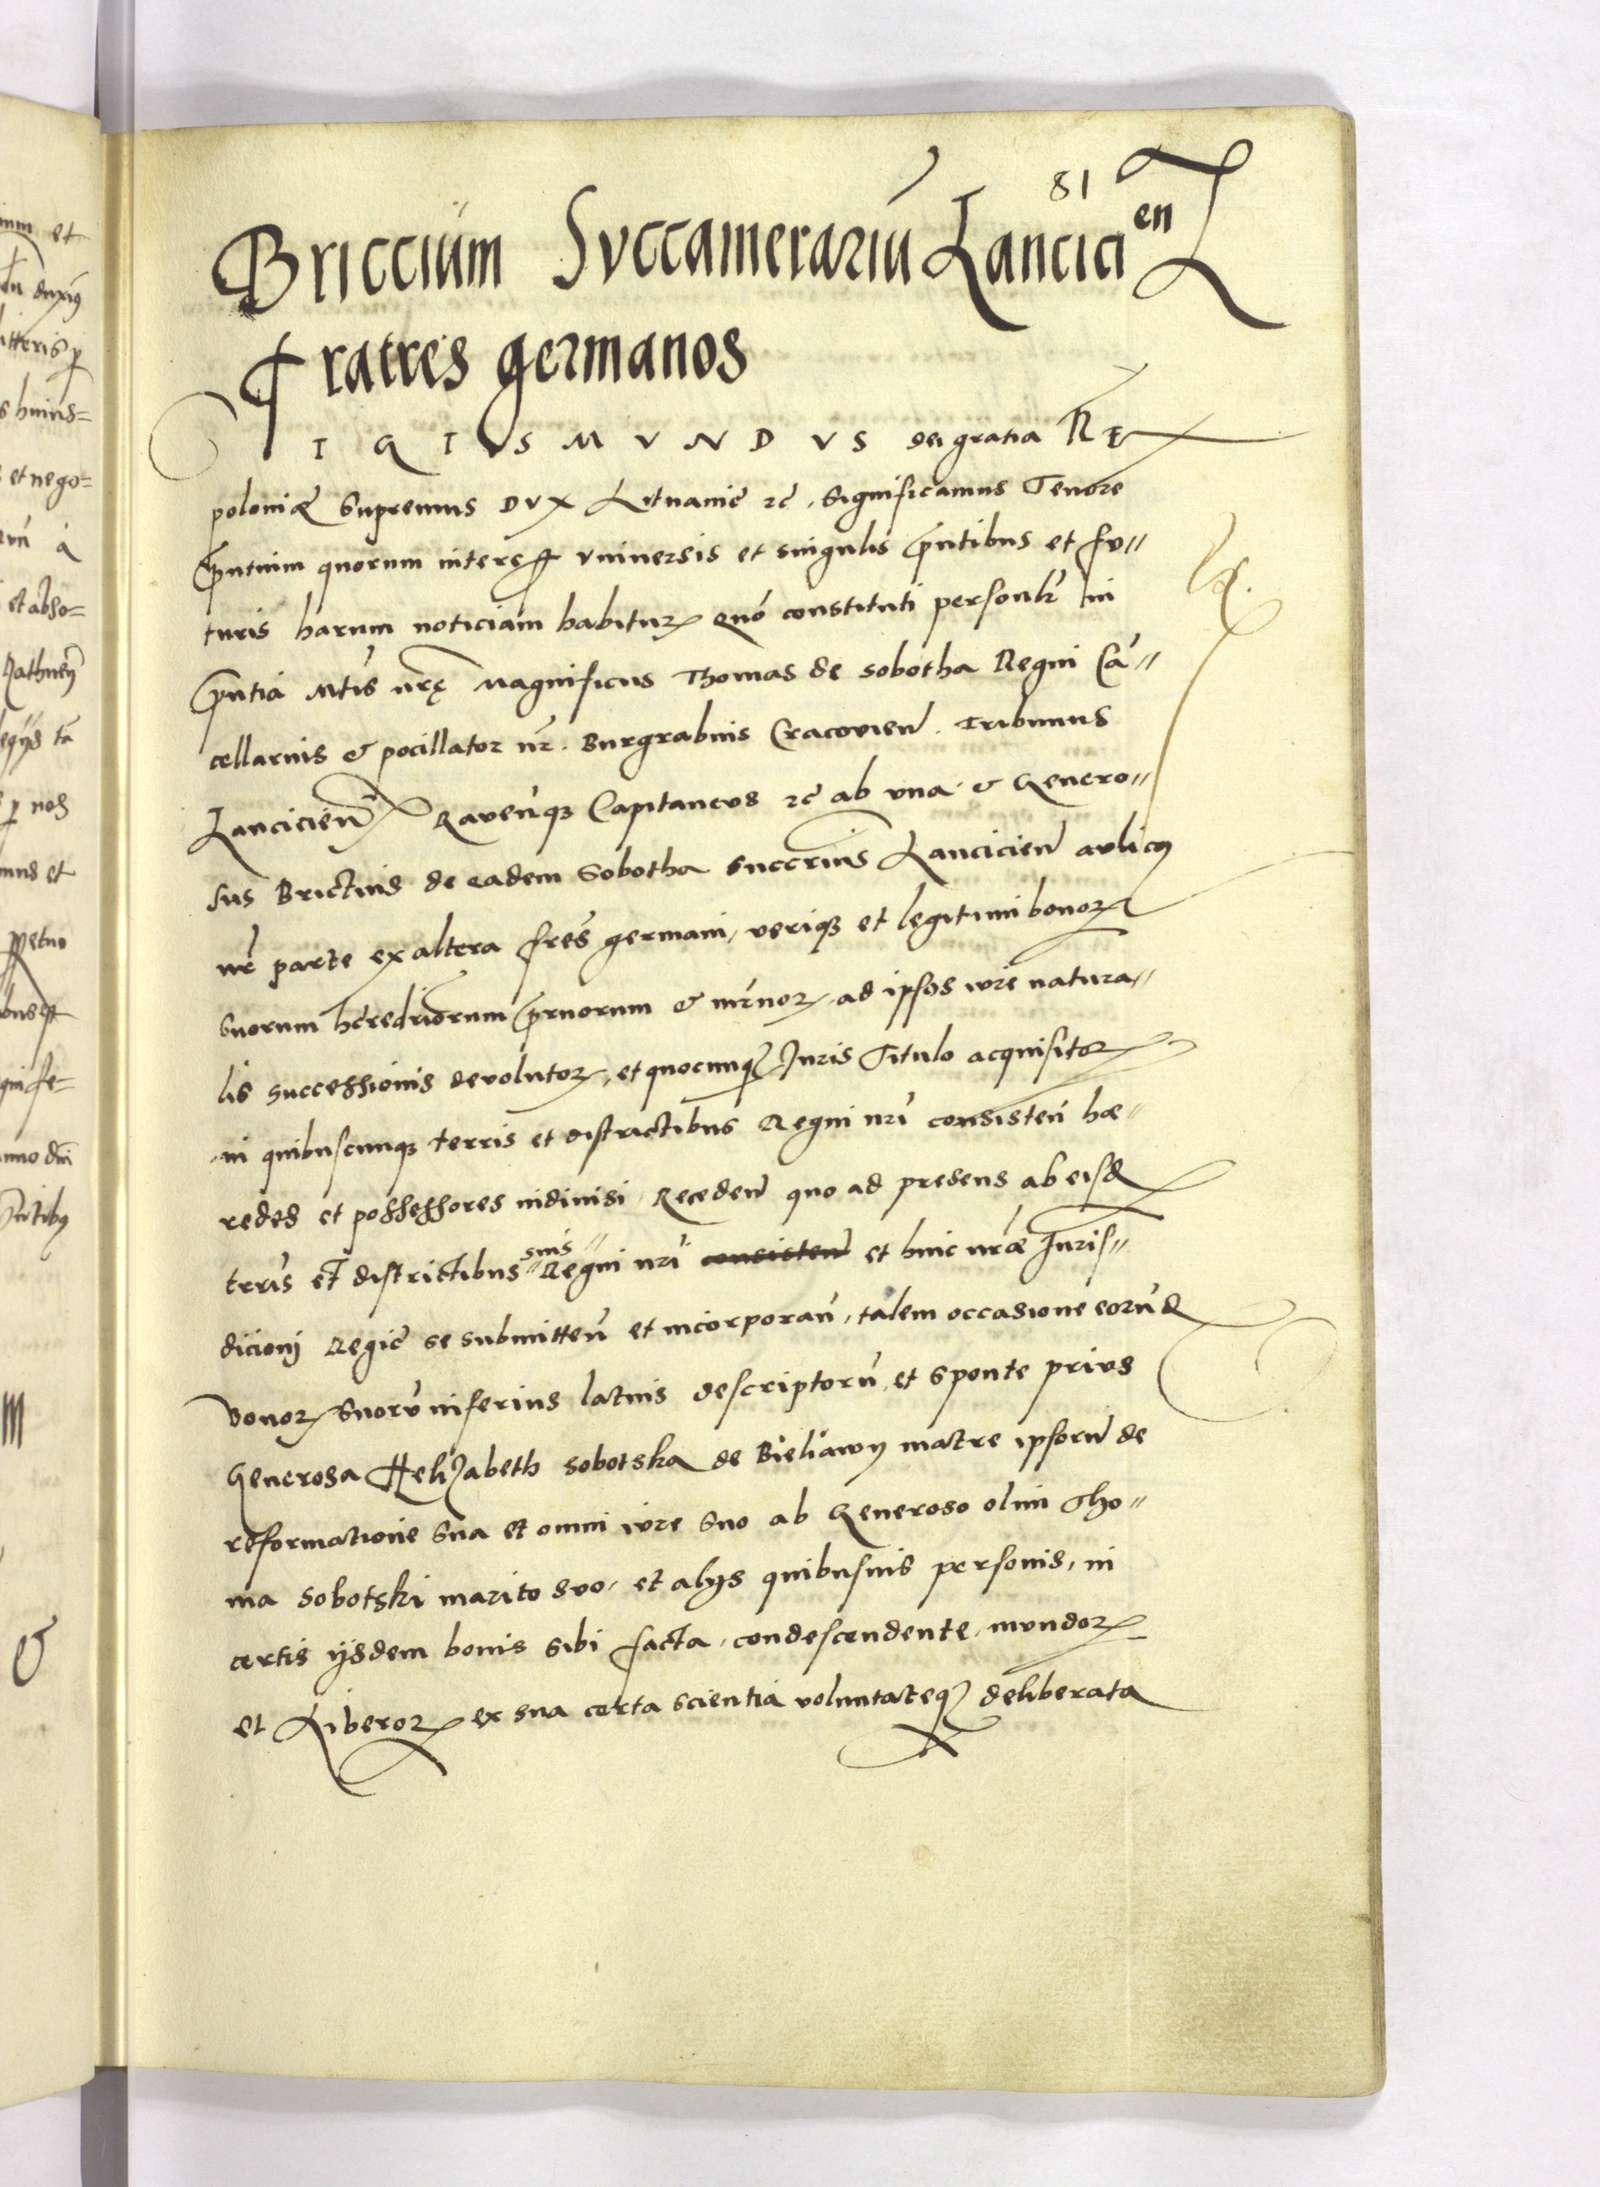 81
Bricciüm Svccamerariū Lancicien
Fratres germanos
IGISMVNDVS dei gratia Rex
poloniæ Supremus DVX Lituaniē rc̄. Significamus Tenore
p̄ntium quorum interest vniuersis et singulis p̄ntibus et fu=
turis harum noticiam habitur. Quō constituti personlr̄ in
p̄ntia Mtis nrę Magnificus Thomas de Sobotha Regni Cā=
cellarius & pocillator nr̄. Burgrabius Cracovien̄. Tribunus
Lancicien̄ Raven̄q; Capitaneus rc̄ ab vna & Genero=
sus Brictius de eadem Sobotha Succrius Lancicien̄ aulicus
nr̄ parte ex altera frēs germani, veriq; et legitimi bonor.
Suorum heredriorum p̄rnorum & mr̄nor. ad ipsos iure natura=
lis successionis devolutor. et quocunq; Juris Titulo acquisitor.
in quibuscunq; terris et distractibus Regni nrī consisten̄ hæ=
redes et possessores indiuisi Receden̄ quo ad presens ab eisd
terrīs et districtibus suis Regni nrī consisten̄ et huic nræ Juris=
dicionj Regiē se submitten̄ et incorporan̄, talem occasione eorūd
bonor. Suorū inferius latius descriptorū, et sponte prius
Generosa Helizabeth Sobotska de Bieliawy matre ipsorū de
reformatione sua et omni iure suo ab Generoso olim Tho=
ma Sobotski marito suo, et alijs quibusuis personis, in
certis ijsdem bonis sibi facta, condescendente, mvndor.
et Liberor. ex sua certa scientia voluntateq; deliberata